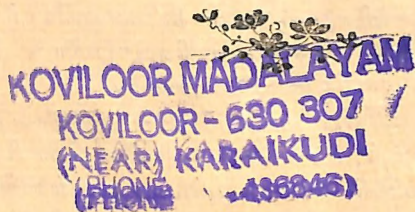 KOVILOOR MADALAYAM
KOVILOOR - 630 307
(NEAR) KARAIKUDI
(PHONE - 436846)